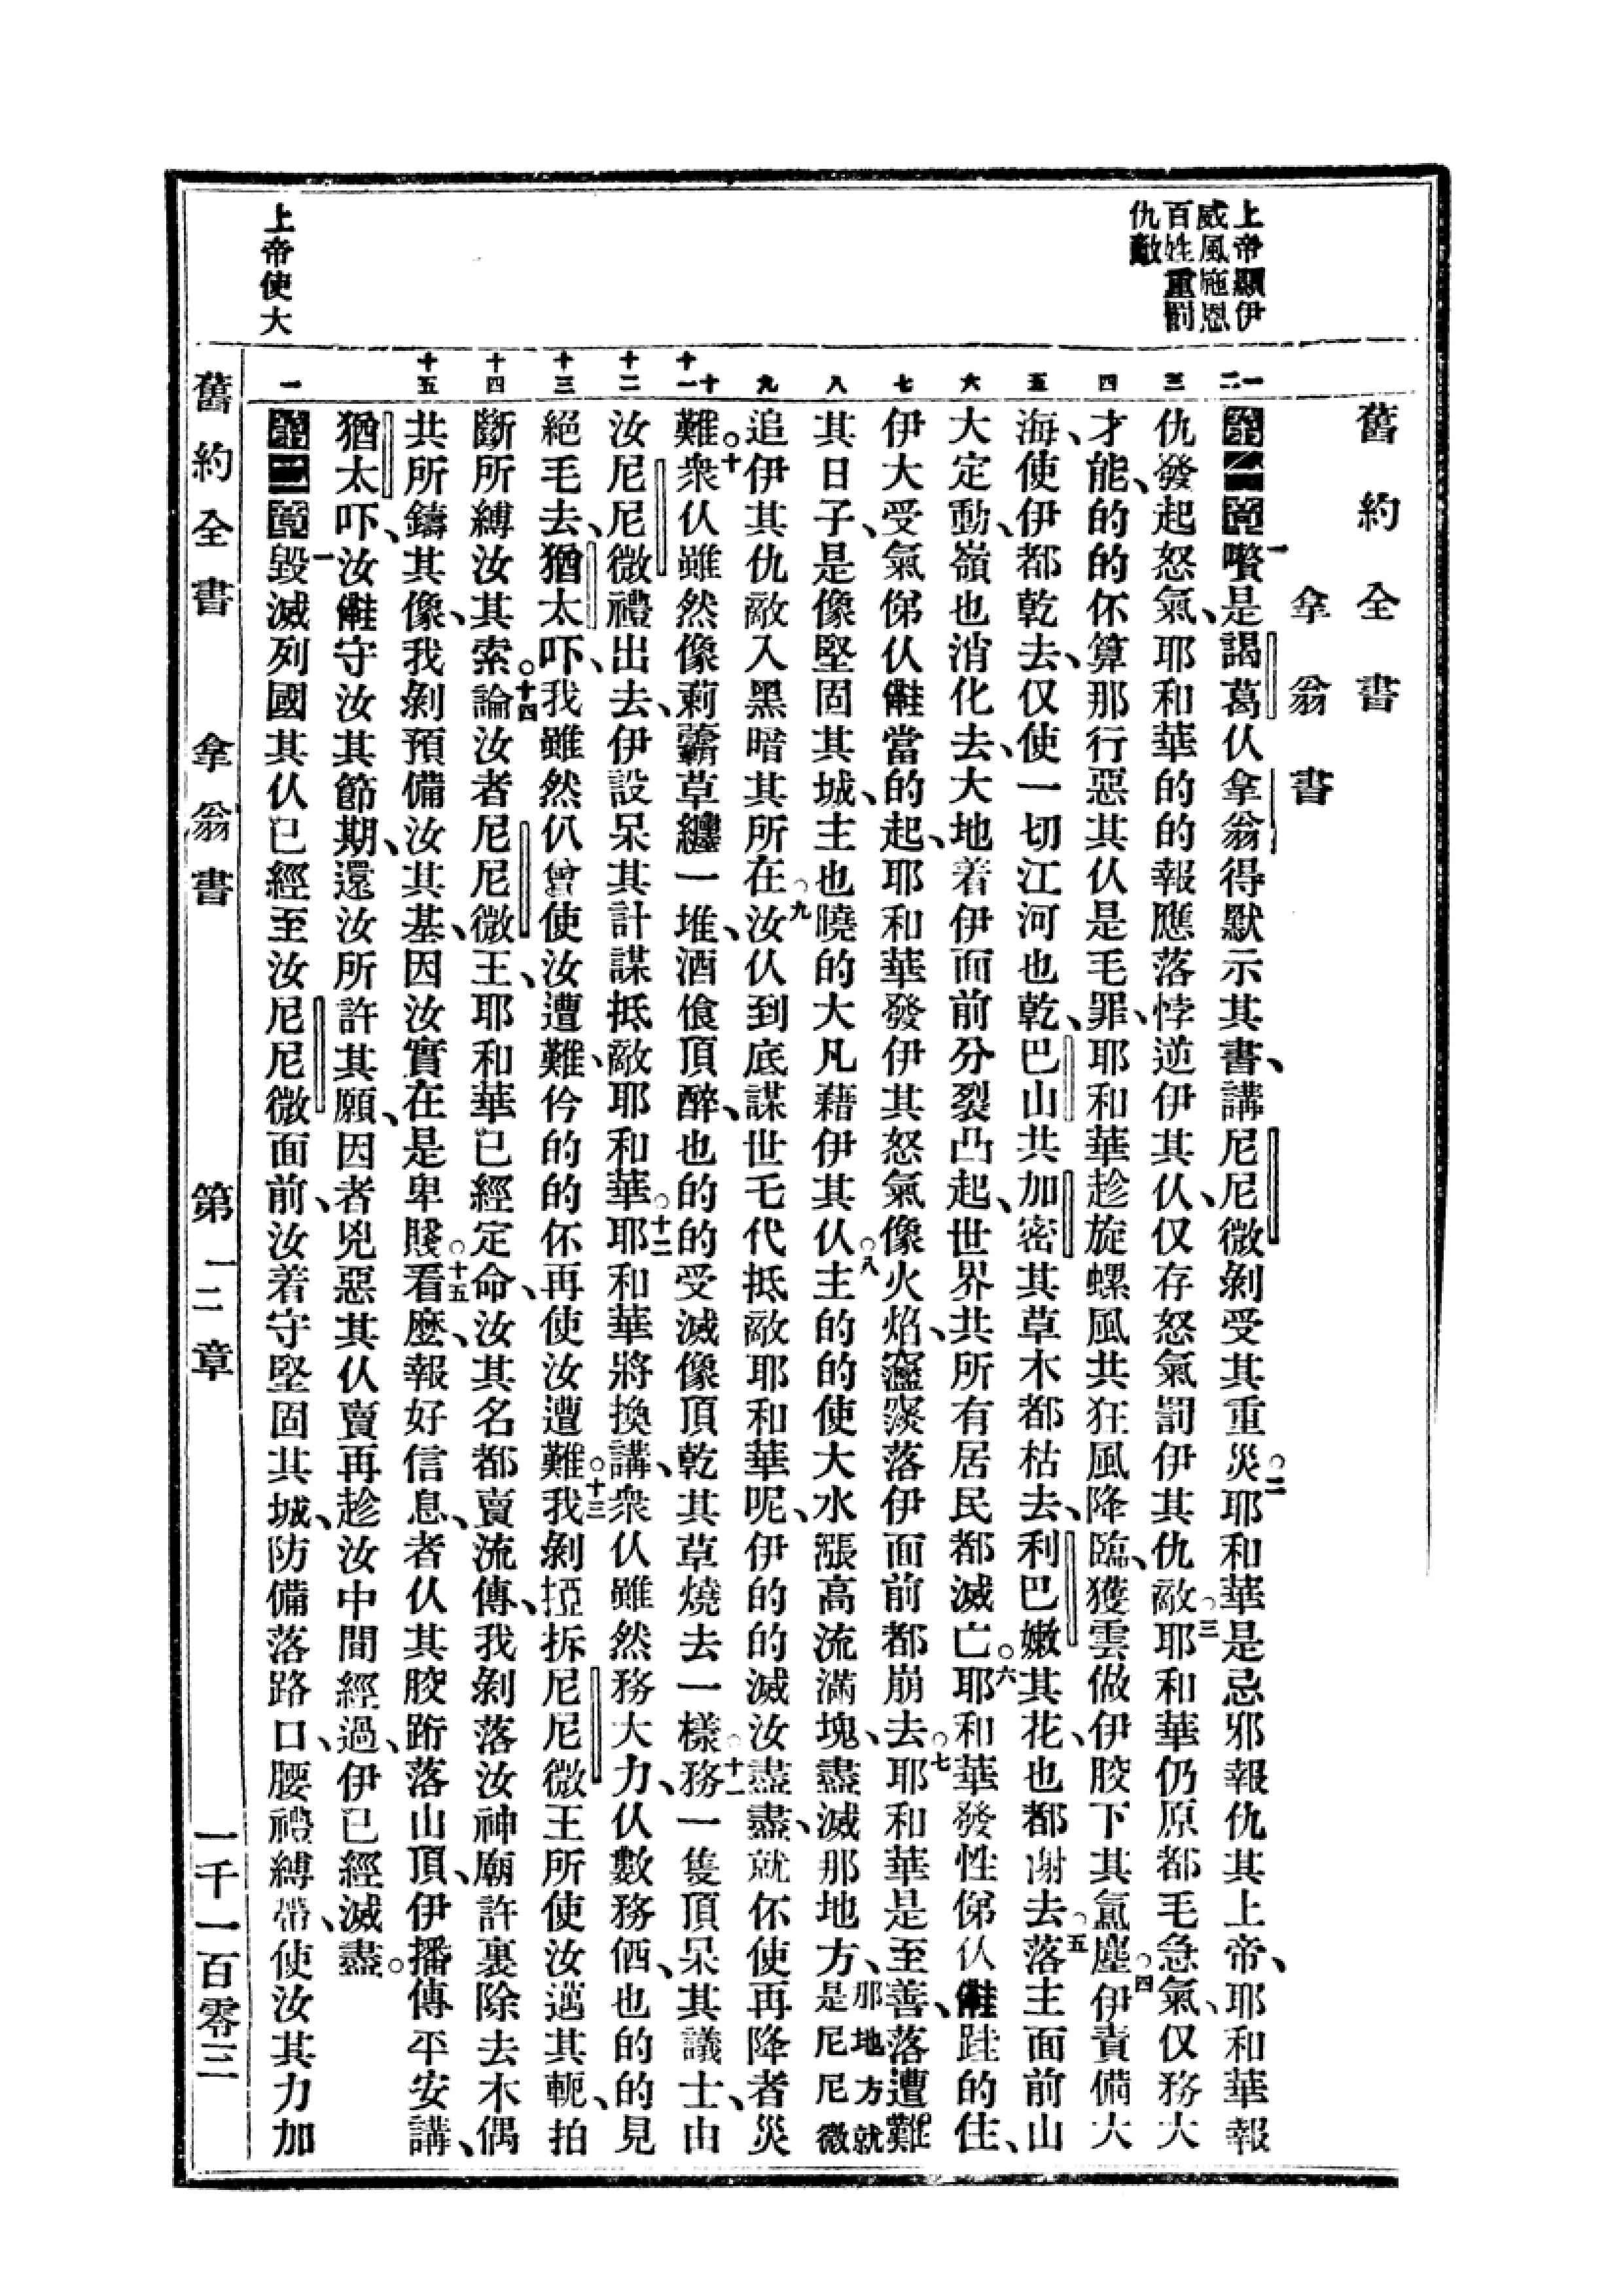 舊約全書
拿翁書
上帝顯伊
威風施恩
百姓重罰
仇敵
一
二
三
四
五
六
七
八
九
十
十一
十二
十三
十四
十五
一
第一章一嚽是謁葛仈拿翁得默示其書、講尼尼微剝受其重災。二耶和華是忌邪報仇其上帝、耶和華報
仇發起怒氣、耶和華的的報應落悖逆伊其仈、仅存怒氣罰伊其仇敵。三耶和華仍原都毛急氣、仅務大
才能、的的伓算那行惡其仈是毛罪、耶和華趁旋螺風共狂風降臨、獲雲做伊骹下其氲塵。四伊責備大
海、使伊都乾去、仅使一切江河也乾、巴山共加密其草木都枯去、利巴嫩其花也都謝去。五落主面前山
大定動、嶺也消化去、大地着伊面前分裂凸起、世界共所有居民都滅亡。六耶和華發性俤仈㑔跬的住、
伊大受氣俤仈㑔當的起、耶和華發伊其怒氣像火焰、䆲䆿落伊面前都崩去。七耶和華是至善、落遭難
其日子、是像堅固其城、主也曉的大凡藉伊其仈。八主的的使大水漲高流滿塊、盡滅那地方、那地方就是尼尼微
追伊其仇敵入黑暗其所在。九汝仈到底謀世乇代抵敵耶和華呢、伊的的滅汝盡盡、就伓使再降者災
難。十衆仈雖然像莿䕷草纏一堆、酒飧頂醉、也的的受滅像頂乾其草燒去一樣。十一務一隻頂呆其議士、由
汝尼尼微禮出去、伊設呆其計謀抵敵耶和華。十二耶和華將換講、衆仈雖然務大力、仈數務価、也的的見
絕毛去、猶太吓、我雖然仈曾使汝遭難、伱的的伓再使汝遭難。十三我剝掗拆尼尼微王所使汝邁其軛、拍
斷所縛汝其索。十四論汝者尼尼微王、耶和華已經定命、汝其名都賣流傳、我剝落汝神廟許裏除去木偶
共所鑄其像、我剝預備汝其基、因汝實在是卑賤。十五看麽、報好信息、者仈其骹跲落山頂、伊播傳平安講、
猶太吓、汝㑔守汝其節期、還汝所許其願、因者兇惡其仈賣再趁汝中間經過、伊已經滅盡。
第二章一毀滅列國其仈已經至汝尼尼微面前、汝着守堅固其城、防備落路口、腰禮縛帶、使汝其力加
上帝使大
舊約全書　拿翁書　第一二章　一千一百零三